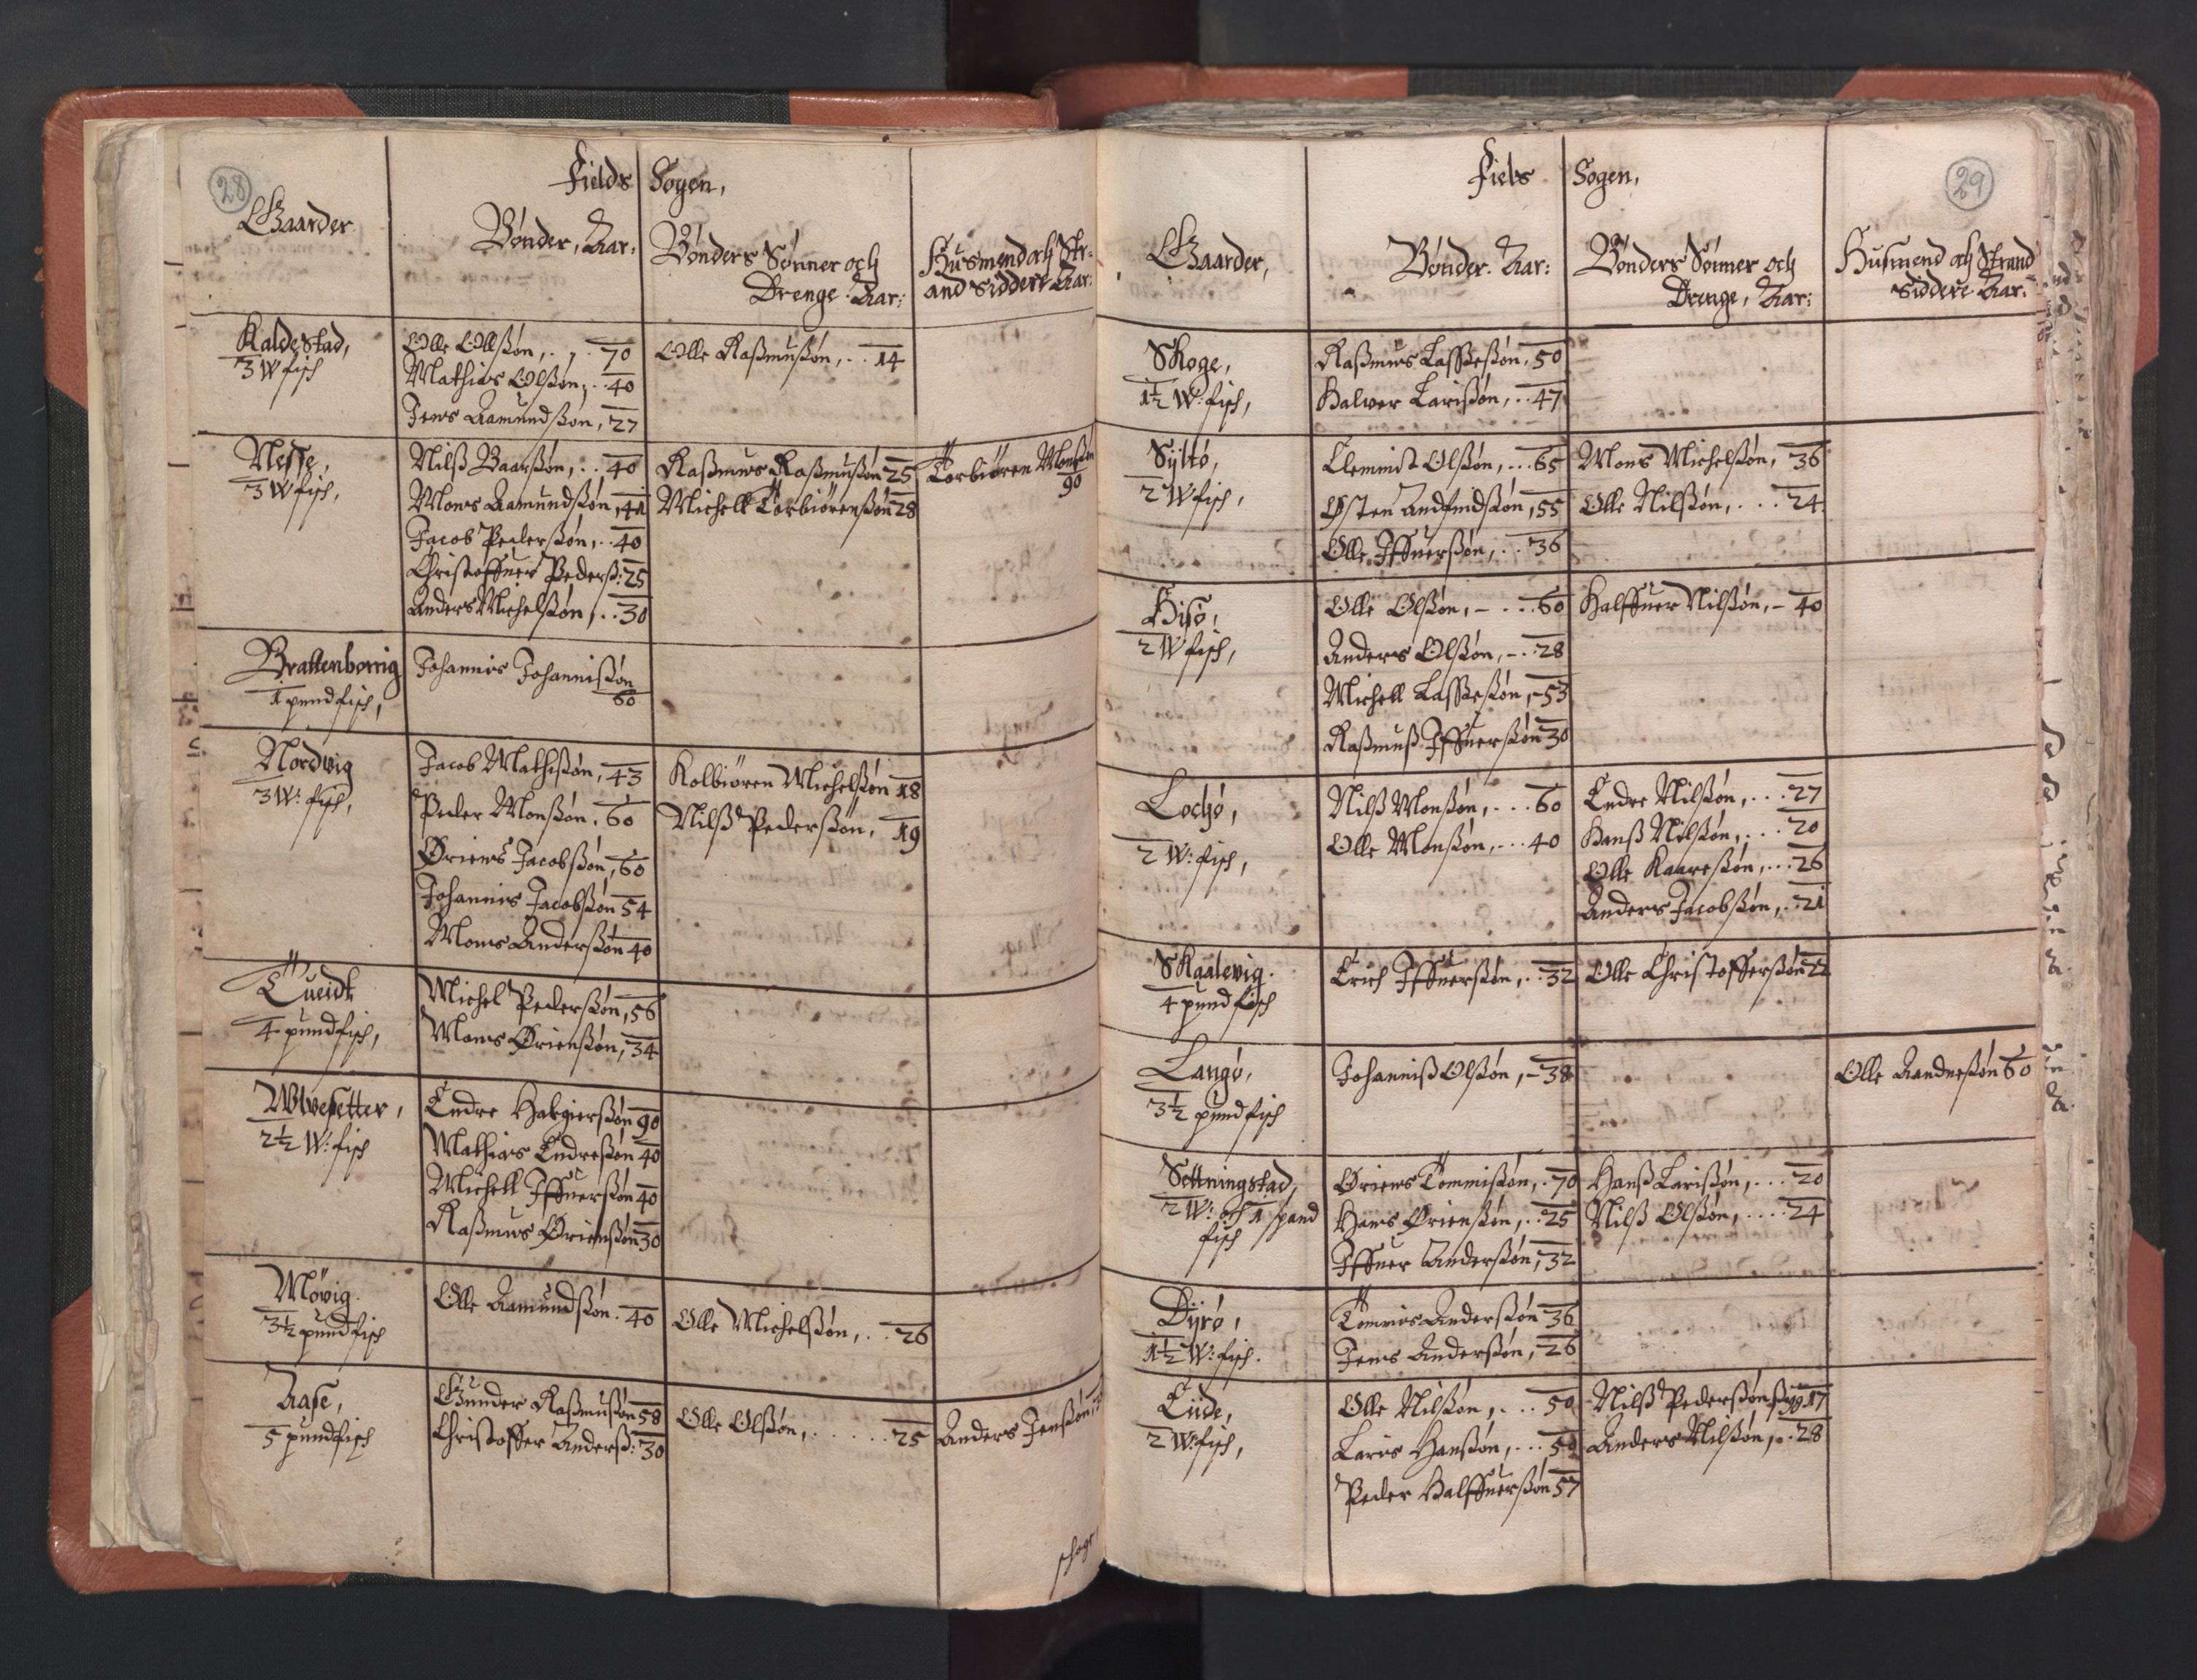 28
Fields Sogen,
Gaarder
Bønder, Aar:
Bønders Sønner och
Drenge. Aar:
Husmend och Str-
and Siddere Aar:
Kaldestad,
3 W fisch
Olle Ollßøn, . , . 70
Mathias Olßøn, . . 40
Jens Aamundßøn, 27
Olle Raßmußøn, . . 14
Nesse,
3 W fisch,
Nilß Baarßøn, . . 40
Mons Aamundßøn, 41
Jacob Pederßøn, . . 40
Christoffuer Pederß: 25
Anders Michelßøn, . . 30
Raßmus Raßmußøn 25
Michell Torbiørenßøn 28
Torbiøren Monßøn
90
Brattenborrig
1 pund fisch,
Johannis Johannißøn
60
Nordvig
3 W: fisch,
Jacob Mathißøn, 43
Peder Monßøn, 60
Øriens Jacobßøn, 60
Johannis Jacobßøn 54
Mons Anderßøn 40
Kolbiøren Michelßøn 18
Nilß Pederßøn, 19
Tueidt
4 pund fisch,
Michel Pederßøn, 56
Mons Ørienßøn, 34
Wlvesetter,
2½ W: fisch
Endre Hakgierßøn 90
Mathias Endreßøn 40
Michell Iffuerßøn 40
Raßmus Ørienßøn 30
Møvig.
3½ pund fisch
Olle Aamundßøn. 40
Olle Michelßøn, . . 26
Aase,
5 pundfisch
Gunder Raßmußøn 58
Christoffer Anderß: 30
Olle Olßøn, . . . . . . 25
Anders Jenßøn,
skoge
29
Fields Sogen,
Gaarder,
Bønder. Aar:
Bønders Sønner och
Drenge, Aar:
Husmend och Strand
Siddere Aar:
Skoge,
1½ W: fisch,
Raßmus Laßßeßøn, 50
Halver Larißøn, . . 47
Syltø,
2 W fisch,
Clemmidt Olßøn, . . . 65
Østen Andfindßøn, 55
Olle Iffuerßøn, . . 36
Mons Michelßøn, 36
Olle Nilßøn, . . . 24
Hisø,
2 W fisch,
Olle Olßøn, – . . . 60
Anders Olßøn, – . . 28
Michell Laßßeßøn, – 53
Raßmuß Iffuerßøn 30
Halffuer Nilßøn, – 40
Lochø,
2 W: fisch,
Nilß Monßøn, . . . 60
Olle Monßøn, . . . 40
Endre Nilßøn, . . . 27
Hanß Nilßøn, . . . 20
Olle Kaareßøn, . . . 26
Anders Jacobßøn, . . 21
Skaalevig.
4 pund fisch
Erich Iffuerßøn, . . 32
Olle Christofferßøn 22
Langø,
3½ pund fisch
Johanniß Olßøn, – 38
Olle Aandneßøn 60
Settningstad,
2 W: och 1 pund
fisch
Øriens Tommißøn, . 70
Hans Ørienßøn, . . 25
Iffuer Anderßøn, 32
Hanß Larißøn, . . . 20
Nilß Olßøn, . . . . 24
Dyrø,
1½ W: fisch.
Tommis Anderßøn 36
Jens Anderßøn, 26
Eide,
2 W: fisch,
Olle Nilßøn, . . . 50
Laris Hanßøn, . . . 50
Peder Halffuerßøn 57
Nilß Pederßøn 17
Anders Nilßøn, . . 28